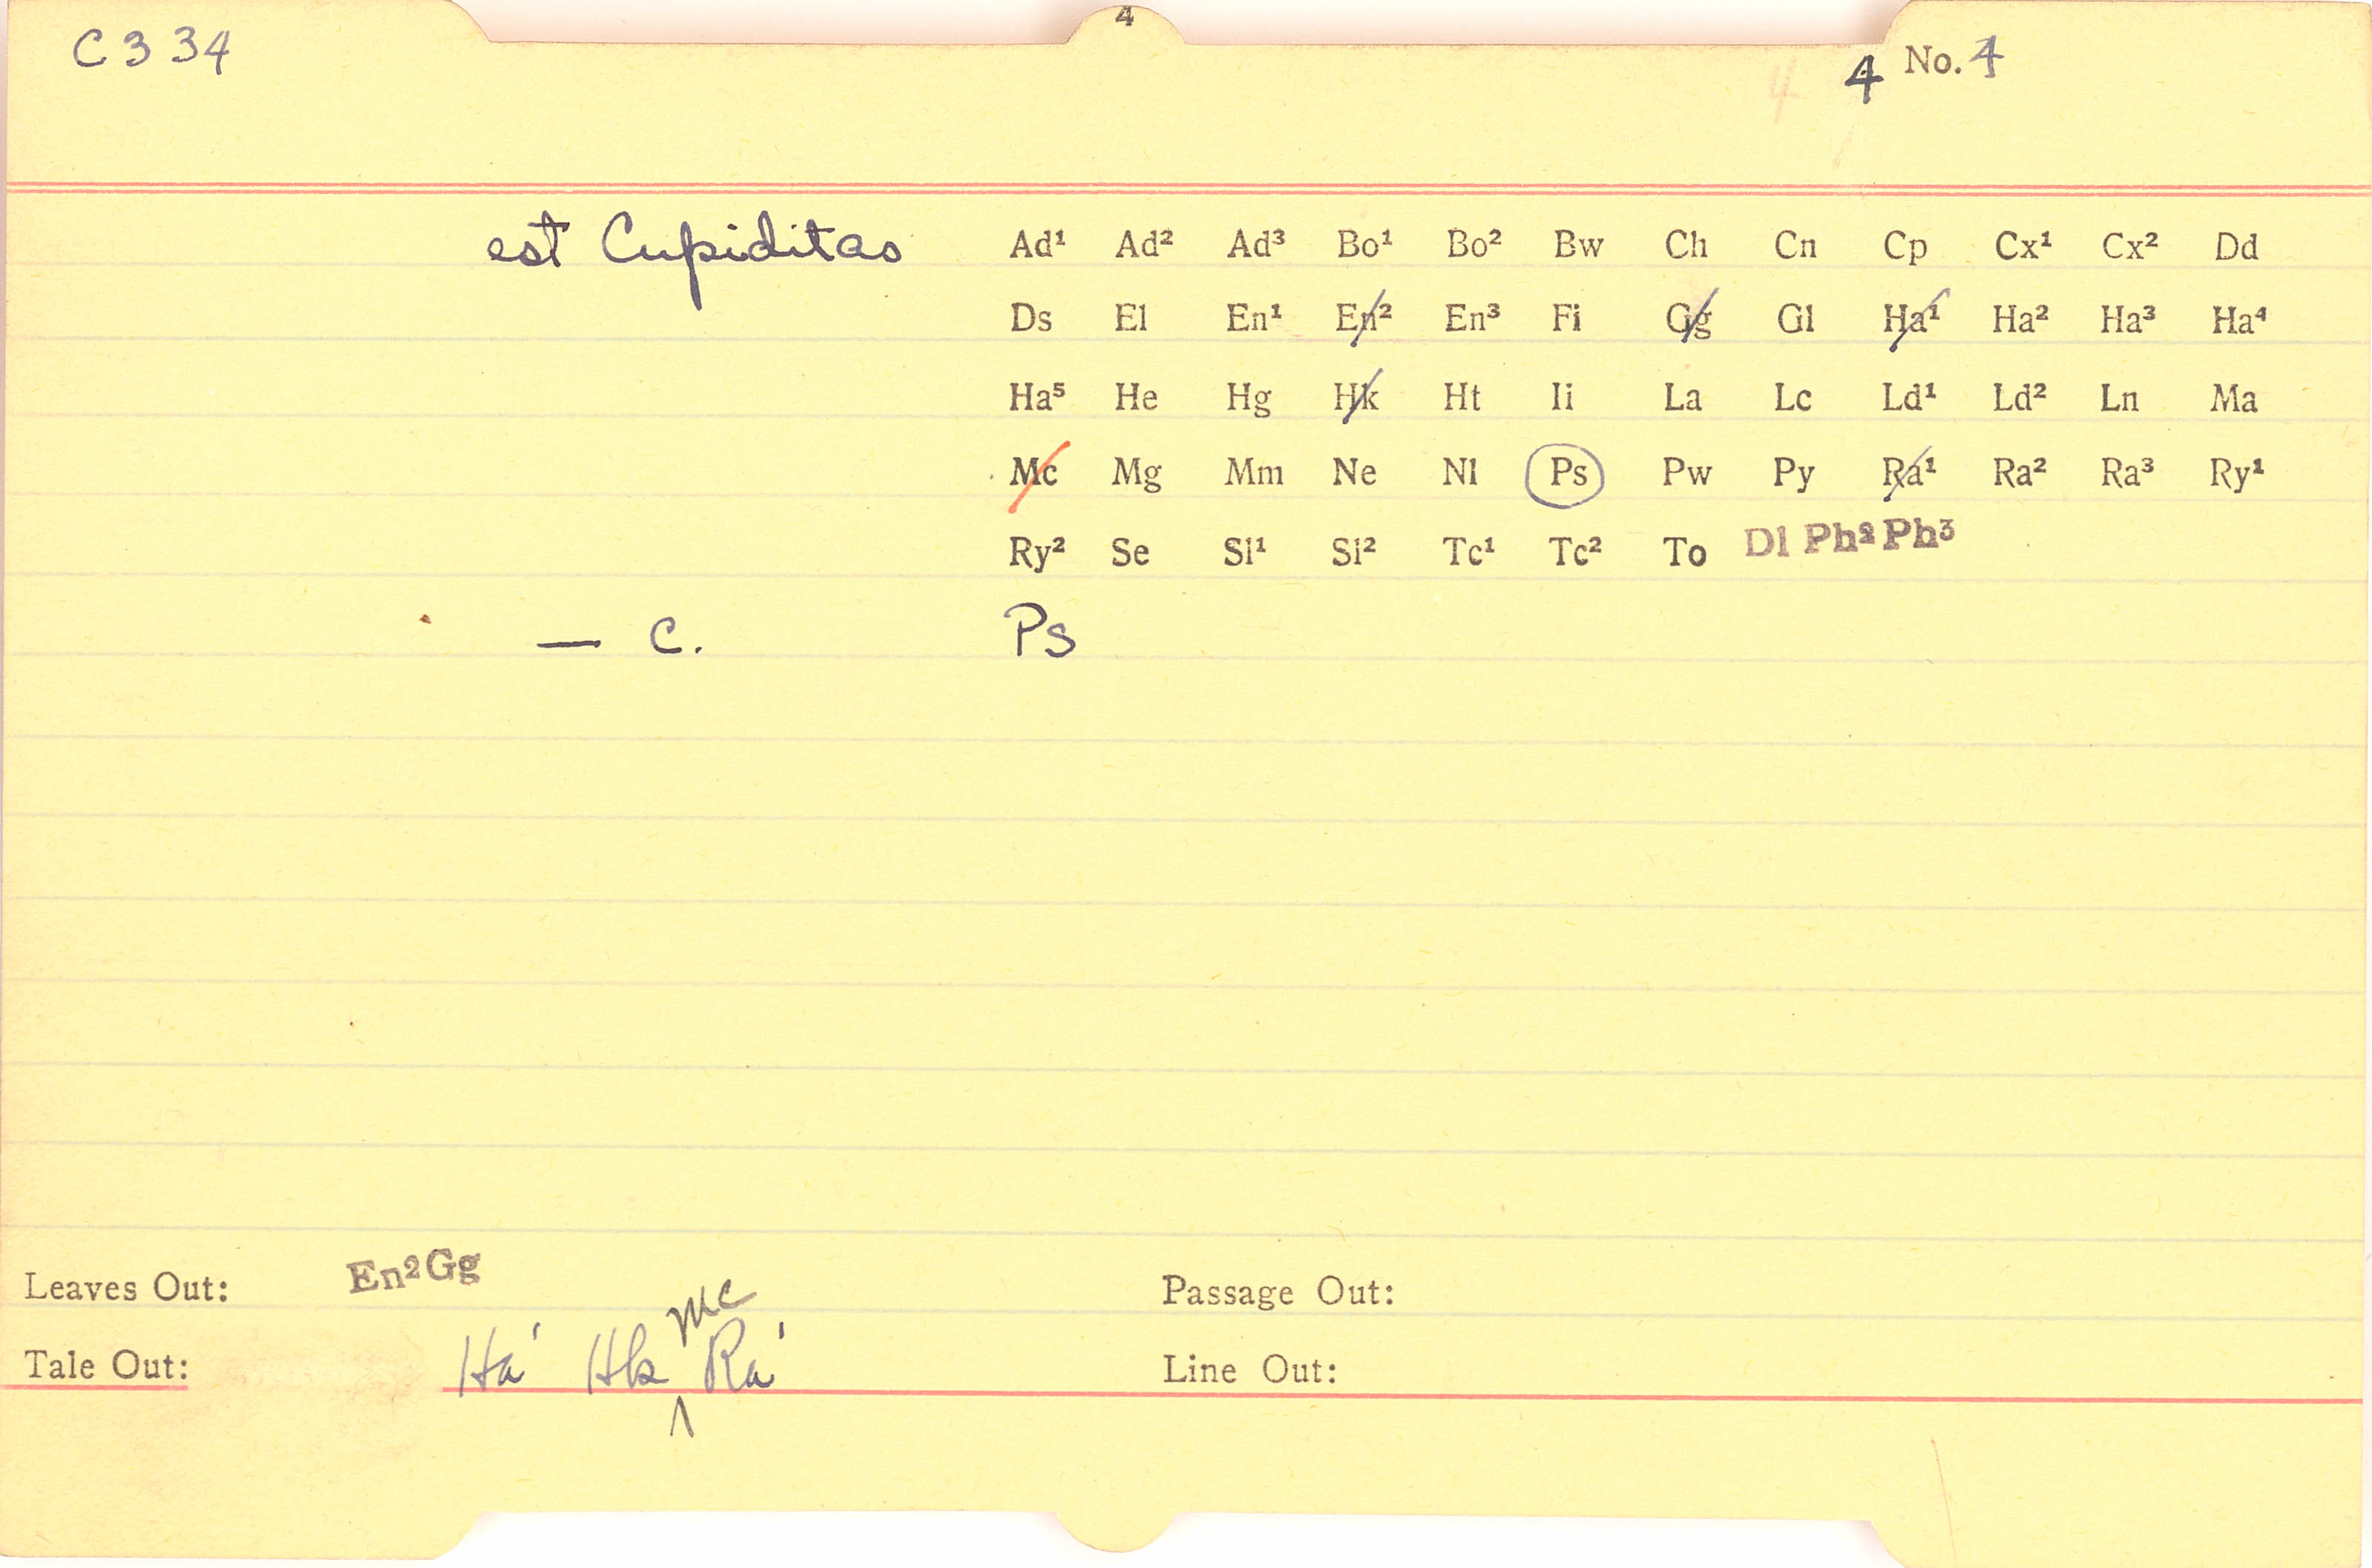 4
C 334
4 No. 4
est Cupiditas Ad¹ Ad² Ad³ Bo¹ Bo² Bw Ch Cn Cp Cx¹ Cx² Dd
Ds El En¹ En² En³ Fi Gg Gl Ha¹ Ha² Ha³ Ha⁴
Ha⁵ He Hg Hk Ht Ii La Lc Ld¹ Ld² Ln Ma
Mc Mg Mm Ne Nl Ps Pw Py Ra¹ Ra² Ra³ Ry¹
Ry² Se Sl¹ Sl² Tc¹ Tc² To Dl Ph² Ph³
— C. Ps
Leaves Out: En² Gg Passage Out:
Mc
Tale Out: Ha¹ Hk ^ Ra¹ Line Out: